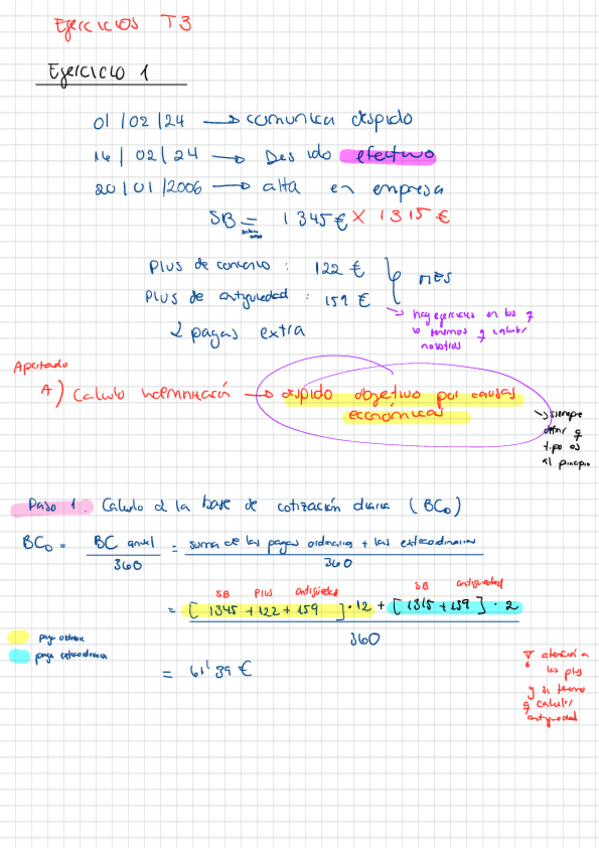 EJERCICIOS T3
Ejercicio 1
01/02/24 → comunica despido
16/02/24 → Des ido efectivo
20/01/2006 → alta en empresa
SB = 1345€ × 1315€
Plus de convenio : 122 €
Plus de antigüedad : 159 € MES
2 pagas extra
→ hay ejercicios en los q
lo tenemos q calcular
nosotros
Apartado
A) Calculo indemnización → despido objetivo por causas
económicas
→ siempre
definir q
tipo es
al principio
Paso 1. Calculo d la base de cotización diaria (BCD)
BCD = BC anual / 360 = suma de las pagas ordinarias + las extraordinarias / 360
SB Plus antigüedad SB antigüedad
= [1345 + 122 + 159] · 12 + [1315 + 159] · 2 / 360
paga ordinaria
paga extraordinaria
= 61'39 €
! atención a
los plus
y si tenemos
q calcular
antigüedad